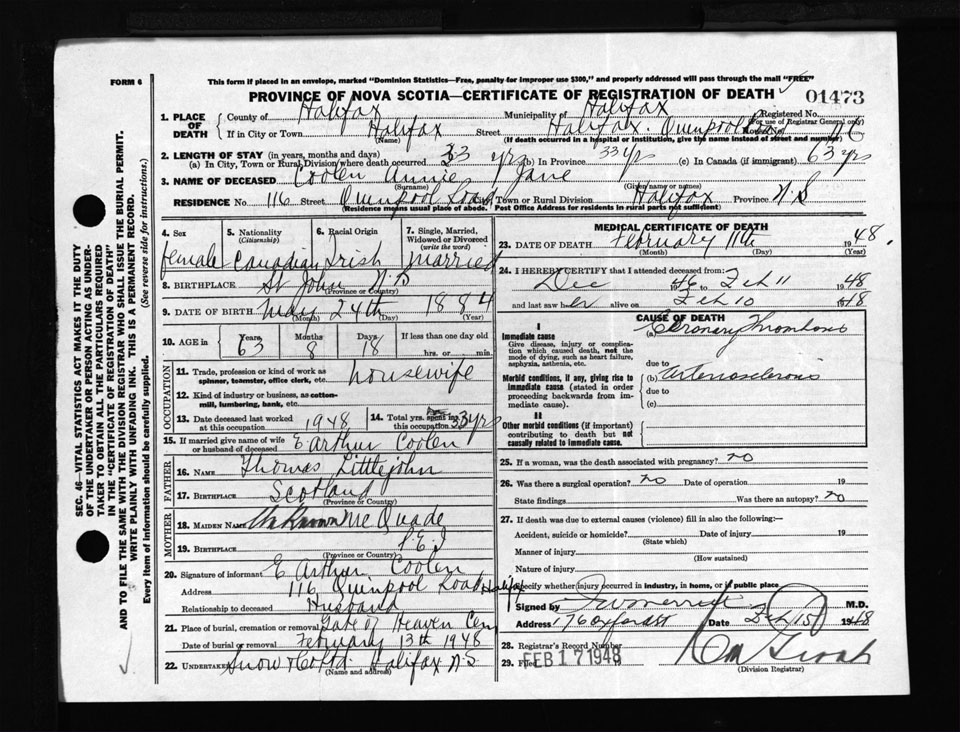 FORM 6
This form if placed in an envelope, marked "Dominion Statistics—Free, penalty for improper use $300," and properly addressed will pass through the mail "FREE"
PROVINCE OF NOVA SCOTIA—CERTIFICATE OF REGISTRATION OF DEATH
01473
1. PLACE OF DEATH
County of Halifax
Municipality of Halifax
Registered No.
(For use of Registrar General only)
If in City or Town Halifax Street Halifax. Quinpool Road 116
(Name)
(If death occurred in a hospital or institution, give the name instead of street and number)
2. LENGTH OF STAY (in years, months and days)
(a) In City, Town or Rural Division where death occurred 33 yrs (b) In Province 33 yrs (c) In Canada (if immigrant) 63 yrs
3. NAME OF DECEASED Coolen Annie Jane
(Surname) (Given name or names)
RESIDENCE No. 116 Street Quinpool Road City Town or Rural Division Halifax Province N.S
(Residence means usual place of abode. Post Office Address for residents in rural parts not sufficient)
4. Sex
female
5. Nationality (Citizenship)
Canadian
6. Racial Origin
Irish
7. Single, Married, Widowed or Divorced (write the word)
Married
8. BIRTHPLACE St John N.B
(Province or Country)
9. DATE OF BIRTH May 24th 1884
(Month) (Day) (Year)
10. AGE in
Years 63
Months 8
Days 18
If less than one day
hrs. or min.
OCCUPATION
11. Trade, profession or kind of work as spinner, teamster, office clerk, etc. housewife
12. Kind of industry or business, as cotton-mill, lumbering, bank, etc.
13. Date deceased last worked at this occupation 1948
14. Total yrs. spent in this occupation 33 yrs
15. If married give name of wife or husband of deceased E Arthur Coolen
FATHER
16. NAME Thomas Littlejohn
17. BIRTHPLACE Scotland
(Province or Country)
MOTHER
18. MAIDEN NAME Unknown McQuade
19. BIRTHPLACE P.E.I
(Province or Country)
20. Signature of informant E Arthur Coolen
Address 116 Quinpool Road Halifax
Relationship to deceased Husband
21. Place of burial, cremation or removal Gate of Heaven Cem
Date of burial or removal February 13th 1948
22. Undertaker Snow & Co Ltd. Halifax N.S
(Name and address)
MEDICAL CERTIFICATE OF DEATH
23. DATE OF DEATH February 11th 1948.
(Month) (Day) (Year)
24. I HEREBY CERTIFY that I attended deceased from:
Dec 1946 to Feb 11 1948
and last saw her alive on Feb 10 1948
CAUSE OF DEATH
I
Immediate cause
Give disease, injury or complication which caused death, not the mode of dying, such as heart failure, asphyxia, asthenia, etc.
(a) Coronary Thrombosis
due to
Morbid conditions, if any, giving rise to immediate cause (stated in order proceeding backwards from immediate cause).
(b) arteriosclerosis
due to
(c)
II
Other morbid conditions (if important) contributing to death but not causally related to immediate cause.
25. If a woman, was the death associated with pregnancy? no
26. Was there a surgical operation? no Date of operation 19
State findings Was there an autopsy? no
27. If death was due to external causes (violence) fill in also the following:—
Accident, suicide or homicide? Date of injury 19
(State which)
Manner of injury
(How sustained)
Nature of injury
Specify whether injury occurred in industry, in home, or in public place.
Signed by M.D.
Address 176 Oxford St Date Feb 15 1948
28. Registrar's Record Number
29. Filed FEB 17 1948
(Division Registrar)
SEC. 46—VITAL STATISTICS ACT MAKES IT THE DUTY
OF THE UNDERTAKER OR PERSON ACTING AS UNDER-
TAKER TO OBTAIN ALL THE PARTICULARS REQUIRED
IN THE "CERTIFICATE OF REGISTRATION OF DEATH"
AND TO FILE THE SAME WITH THE DIVISION REGISTRAR WHO SHALL ISSUE THE BURIAL PERMIT.
WRITE PLAINLY WITH UNFADING INK. THIS IS A PERMANENT RECORD.
Every item of information should be carefully supplied. (See reverse side for instructions.)